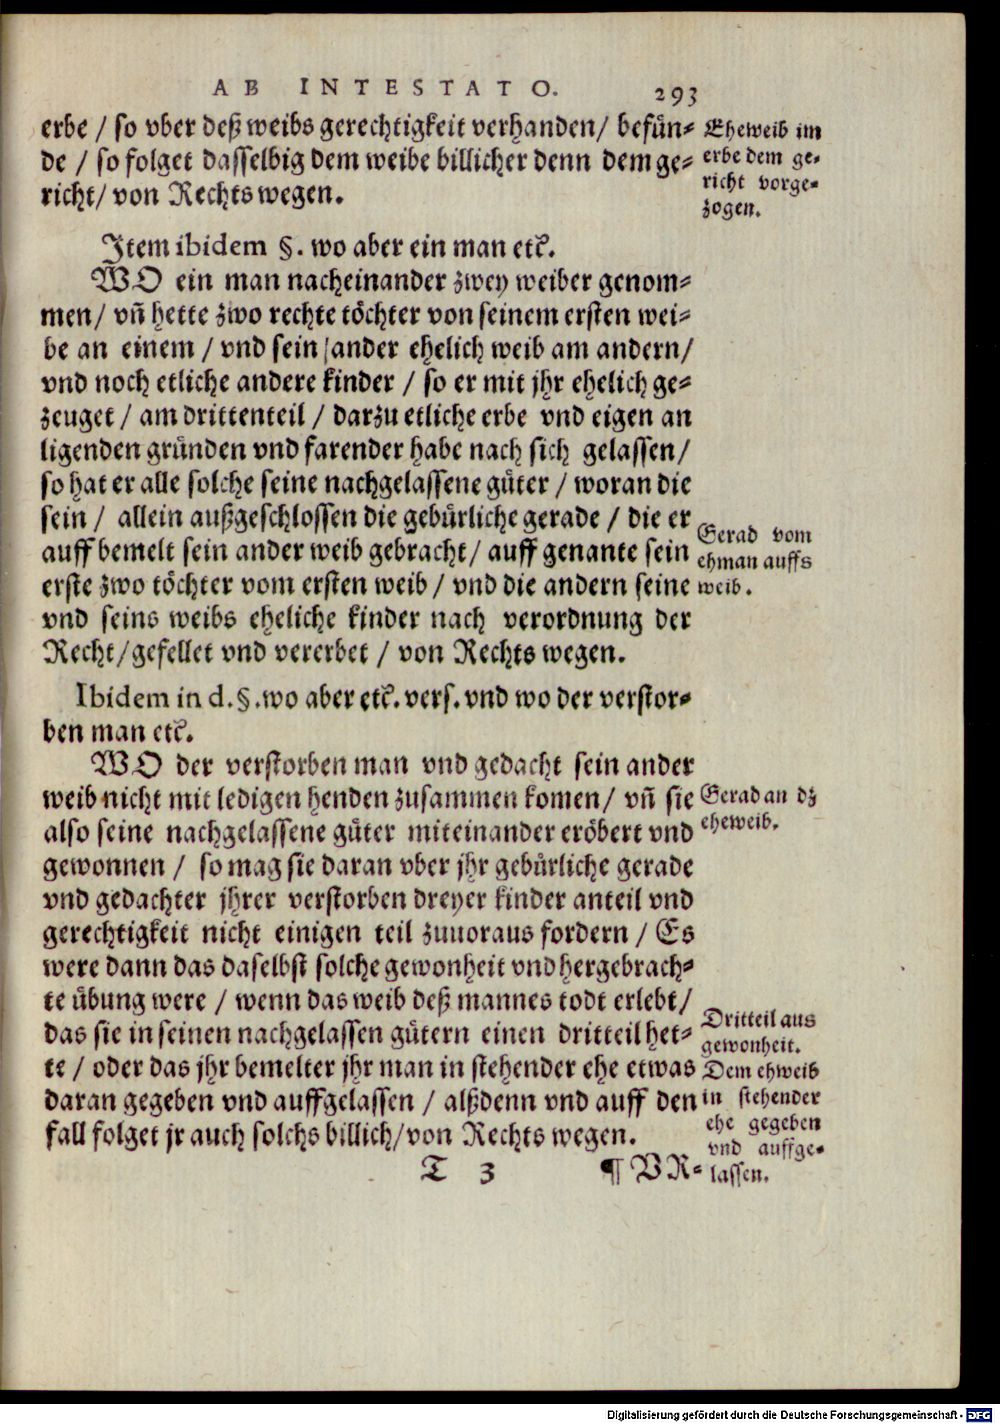 AB INTESTATO. 293
erbe / so vber deß weibs gerechtigkeit verhanden / befün-
de / so folget dasselbig dem weibe billicher denn dem ge-
richt / von Rechts wegen.
Eheweib im
erbe dem ge-
richt vorge-
zogen.
Item ibidem §. wo aber ein man etc.
WO ein man nacheinander zwey weiber genom-
men / vñ hette zwo rechte töchter von seinem ersten wei-
be an einem / vnd sein ander ehelich weib am andern /
vnd noch etliche andere kinder / so er mit jhr ehelich ge-
zeuget / am drittenteil / darzu etliche erbe vnd eigen an
ligenden gründen vnd farender habe nach sich gelassen /
so hat er alle solche seine nachgelassene güter / woran die
sein / allein außgeschlossen die gebürliche gerade / die er
auff bemelt sein ander weib gebracht / auff genante sein
erste zwo töchter vom ersten weib / vnd die andern seine
vnd seins weibs eheliche kinder nach verordnung der
Recht / gefellet vnd vererbet / von Rechts wegen.
Gerad vom
ehman auffs
weib.
Ibidem in d. §. wo aber etc. vers. vnd wo der verstor-
ben man etc.
WO der verstorben man vnd gedacht sein ander
weib nicht mit ledigen henden zusammen komen / vñ sie
also seine nachgelassene güter miteinander eröbert vnd
gewonnen / so mag sie daran vber jhr gebürliche gerade
vnd gedachter jhrer verstorben dreyer kinder anteil vnd
gerechtigkeit nicht einigen teil zuuoraus fordern / Es
were dann das daselbst solche gewonheit vnd hergebrach-
te übung were / wenn das weib deß mannes todt erlebt /
das sie in seinen nachgelassen gütern einen dritteil het-
te / oder das jhr bemelter jhr man in stehender ehe etwas
daran gegeben vnd auffgelassen / alßdenn vnd auff den
fall folget jr auch solchs billich / von Rechts wegen.
Gerad an dz
eheweib.
Dritteil aus
gewonheit.
Dem ehweib
in stehender
ehe gegeben
vnd auffge-
lassen.
T 3 ¶ VR-
Digitalisierung gefördert durch die Deutsche Forschungsgemeinschaft - DFG